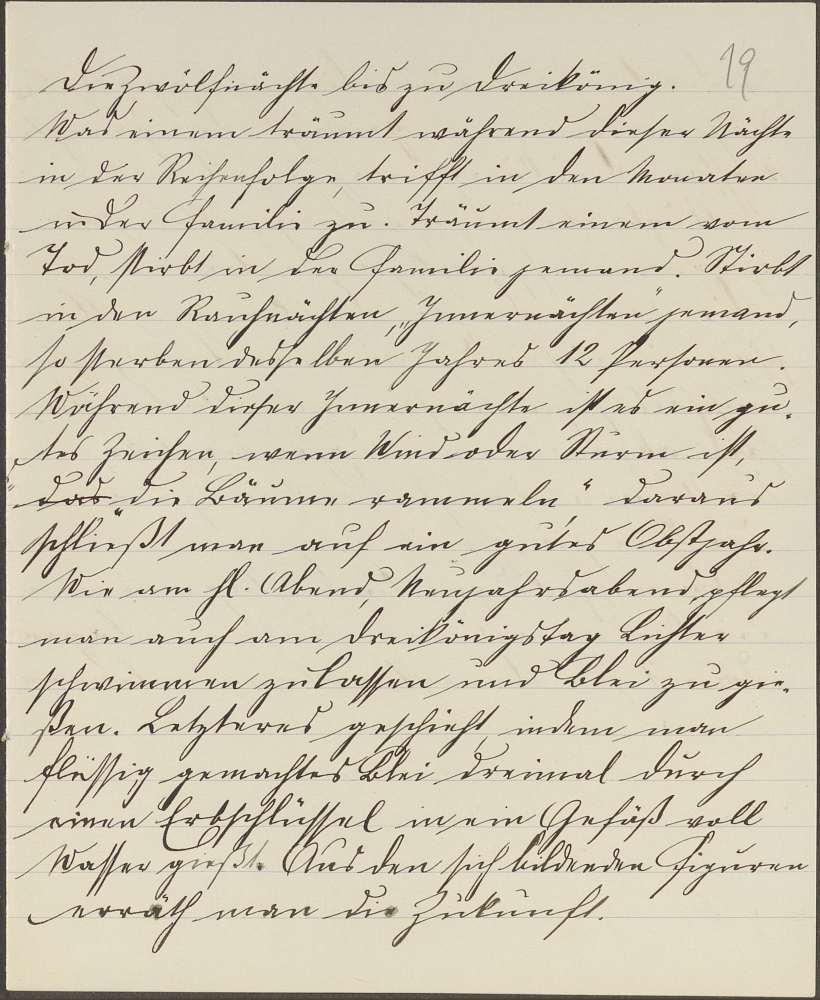 19
Die Zwölfnächte bis zu Dreikönig.
Was einem träumt während dieser Nächte
in der Reihenfolge, trifft in den Monaten
in der Familie zu. Träumt einem vom
Tod, stirbt in der Familie jemand. Stirbt
in den Rauhnächten, „Innernächten" jemand,
so sterben desselben Jahres 12 Personen.
Während dieser Innernächte ist es ein gu-
tes Zeichen, wenn Wind oder Sturm ist,
„das die Bäume rammeln," daraus
schließt man auf ein gutes Obstjahr.
Wie am hl. Abend, Neujahrsabend, pflegt
man auch am Dreikönigstag Lichter
schwimmen zulassen und Blei zu gie-
ßen. Letzteres geschieht, indem man
flüssig gemachtes Blei dreimal durch
einen Erbschlüssel in ein Gefäß voll
Wasser gießt. Aus den sich bildenden Figuren
erräth man die Zukunft.